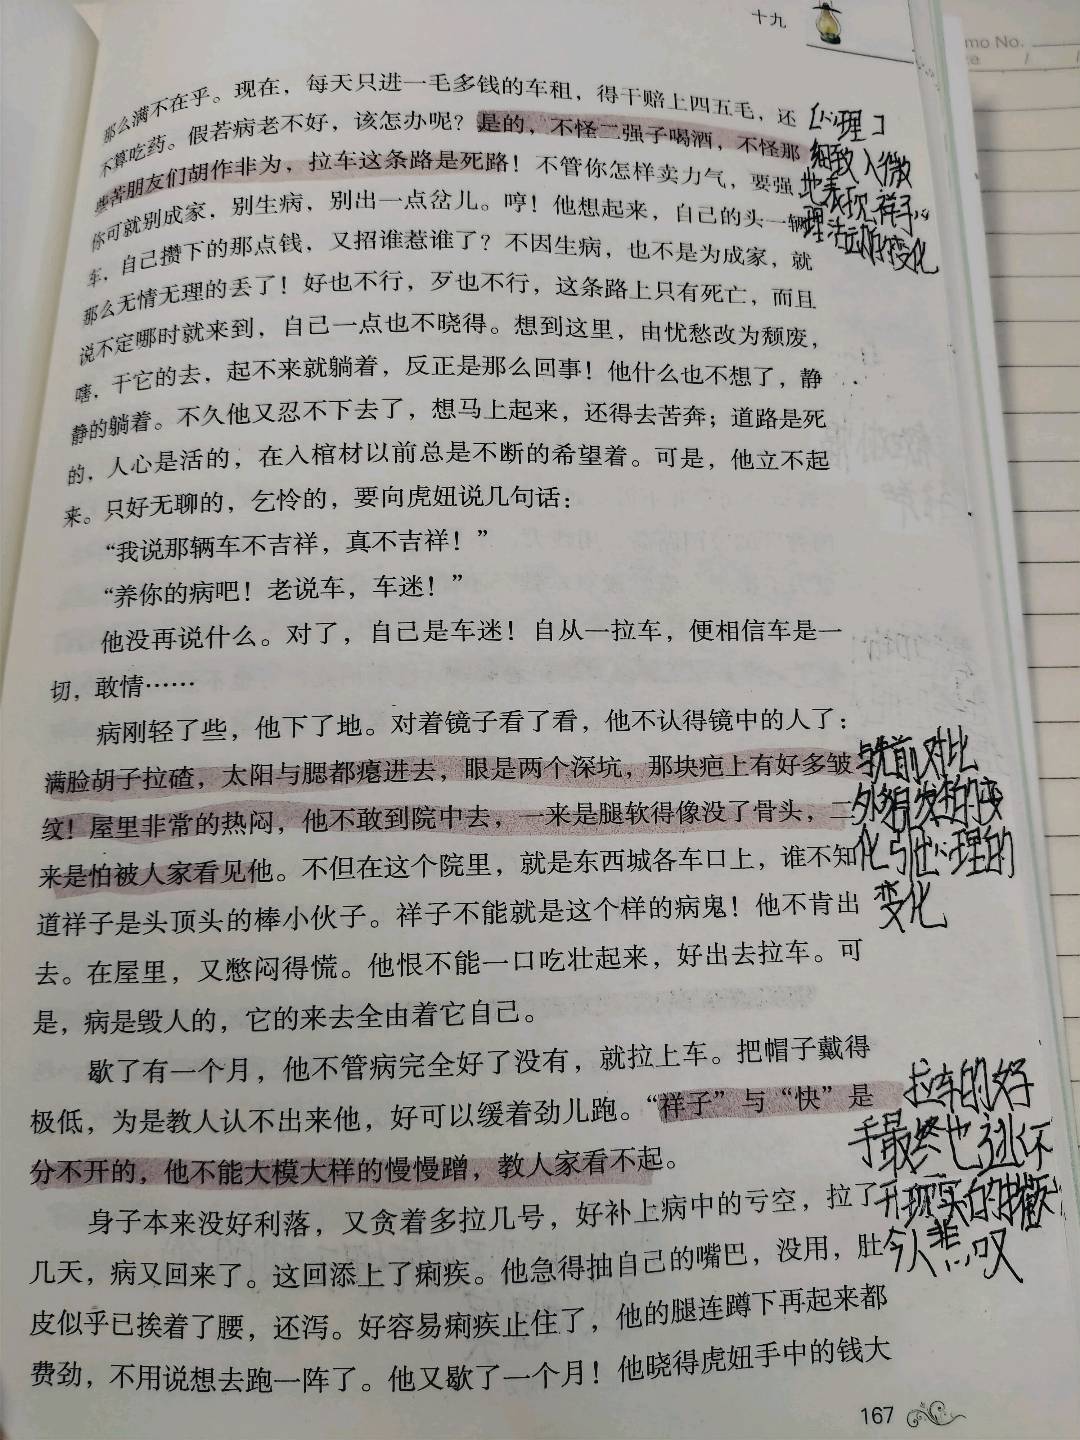 十九
mo No.
那么满不在乎。现在，每天只进一毛多钱的车租，得干赔上四五毛，还
不算吃药。假若病老不好，该怎办呢？是的，不怪二强子喝酒，不怪那
些苦朋友们胡作非为，拉车这条路是死路！不管你怎样卖力气，要强，
你可就别成家，别生病，别出一点岔儿。哼！他想起来，自己的头一辆
车，自己攒下的那点钱，又招谁惹谁了？不因生病，也不是为成家，就
那么无情无理的丢了！好也不行，歹也不行，这条路上只有死亡，而且
说不定哪时就来到，自己一点也不晓得。想到这里，由忧愁改为颓废，
嗐，干它的去，起不来就躺着，反正是那么回事！他什么也不想了，静
静的躺着。不久他又忍不下去了，想马上起来，还得去苦奔；道路是死
的，人心是活的，在入棺材以前总是不断的希望着。可是，他立不起
来。只好无聊的，乞怜的，要向虎妞说几句话：
“我说那辆车不吉祥，真不吉祥！”
“养你的病吧！老说车，车迷！”
他没再说什么。对了，自己是车迷！自从一拉车，便相信车是一
切，敢情……
病刚轻了些，他下了地。对着镜子看了看，他不认得镜中的人了：
满脸胡子拉碴，太阳与腮都瘪进去，眼是两个深坑，那块疤上有好多皱
纹！屋里非常的热闷，他不敢到院中去，一来是腿软得像没了骨头，二
来是怕被人家看见他。不但在这个院里，就是东西城各车口上，谁不知
道祥子是头顶头的棒小伙子。祥子不能就是这个样的病鬼！他不肯出
去。在屋里，又憋闷得慌。他恨不能一口吃壮起来，好出去拉车。可
是，病是毁人的，它的来去全由着它自己。
歇了有一个月，他不管病完全好了没有，就拉上车。把帽子戴得
极低，为是教人认不出来他，好可以缓着劲儿跑。“祥子”与“快”是
分不开的，他不能大模大样的慢慢蹭，教人家看不起。
身子本来没好利落，又贪着多拉几号，好补上病中的亏空，拉了
几天，病又回来了。这回添上了痢疾。他急得抽自己的嘴巴，没用，肚
皮似乎已挨着了腰，还泻。好容易痢疾止住了，他的腿连蹲下再起来都
费劲，不用说想去跑一阵了。他又歇了一个月！他晓得虎妞手中的钱大
167
[心理]
细致入微
地表现祥子心
理活动的变化
与先前对比
外貌发生的变
化引出心理的
变化
拉车的好
手最终也逃不
开现实的
令人悲叹